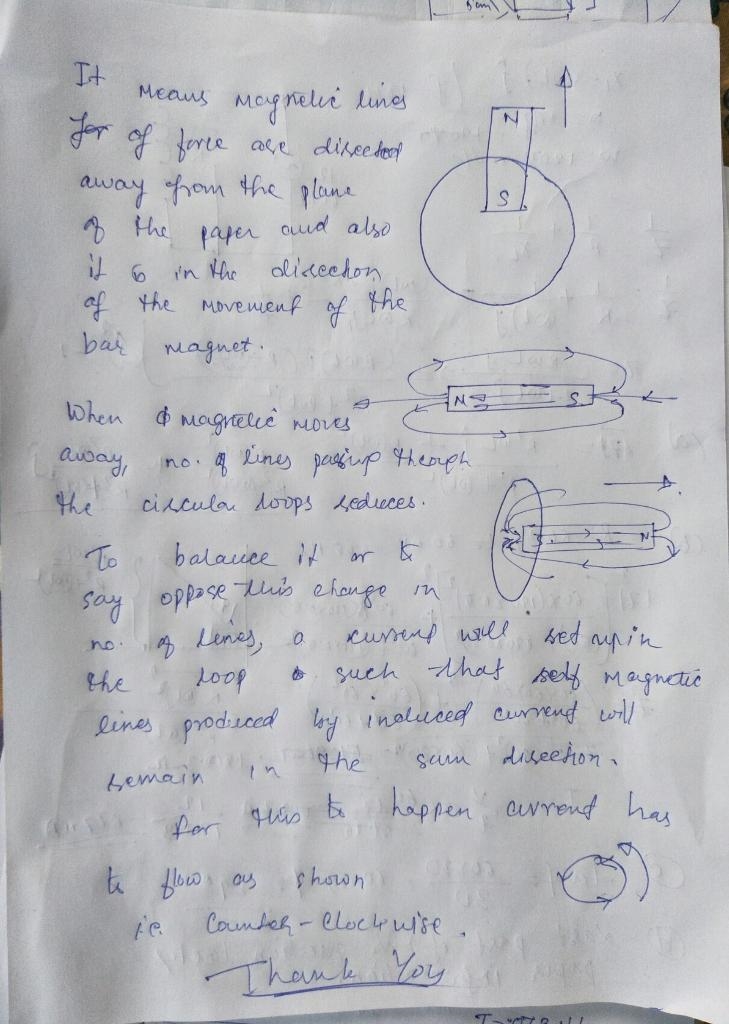 5cm
It means magnetic lines
for of force are directed
N
away from the plane
S
of the paper and also
it is in the direction
of the movement of the
bar magnet.
N S
When magnetic moves
away, no. of lines passing through
the circular loops reduces.
S N
To balance it or to
say oppose this change in
no. of lines, a current will set up in
the loop such that self magnetic
lines produced by induced current will
remain in the sam direction.
For this to happen current has
to flow as shown
i.e. Counter-Clockwise.
Thank You